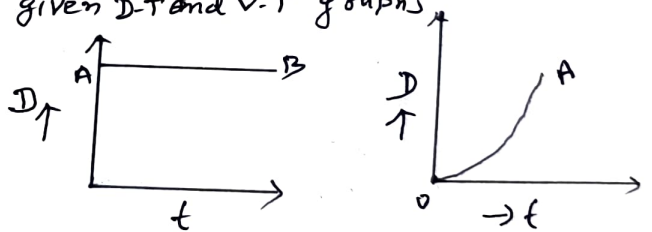 given D-T and V-T graphs
A B
D↑
t
D
↑
A
O
→t